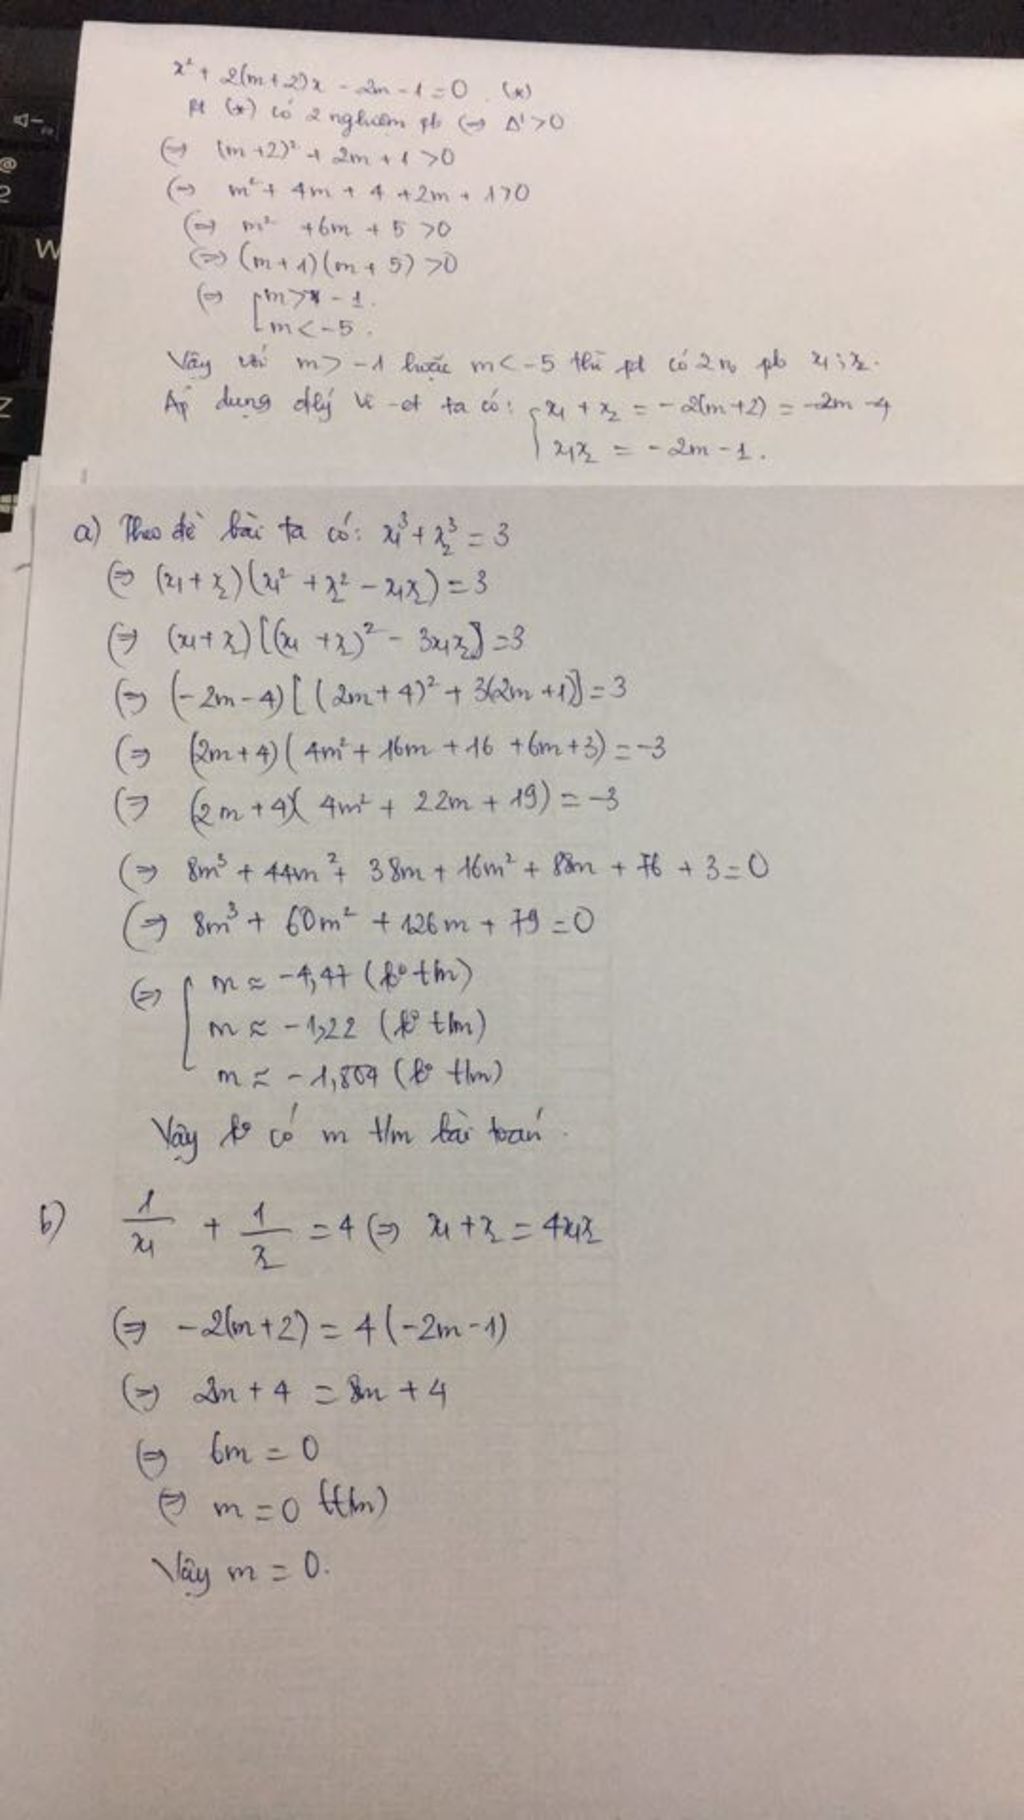 x² + 2(m+2)x - 2m - 1 = 0 (*)
Pt (*) có 2 nghiệm pb ⇔ Δ' > 0
⇔ (m+2)² + 2m + 1 > 0
⇔ m² + 4m + 4 + 2m + 1 > 0
⇔ m² + 6m + 5 > 0
⇔ (m+1)(m+5) > 0
⇔ [ m > -1.
m < -5.
Vậy với m > -1 hoặc m < -5 thì pt có 2 n₀ pb x₁; x₂.
Áp dụng đlý Vi-et ta có: { x₁ + x₂ = -2(m+2) = -2m - 4
x₁x₂ = -2m - 1.
a) Theo đề bài ta có: x₁³ + x₂³ = 3
⇔ (x₁ + x₂)(x₁² + x₂² - x₁x₂) = 3
⇔ (x₁ + x₂)[(x₁ + x₂)² - 3x₁x₂] = 3
⇔ (-2m-4)[(2m+4)² + 3(2m+1)] = 3
⇔ (2m+4)(4m² + 16m + 16 + 6m + 3) = -3
⇔ (2m+4)(4m² + 22m + 19) = -3
⇔ 8m³ + 44m² + 38m + 16m² + 88m + 76 + 3 = 0
⇔ 8m³ + 60m² + 126m + 79 = 0
⇔ [ m ≈ -4,47 (k⁰ t/m)
m ≈ -1,22 (k⁰ t/m)
m ≈ -1,804 (k⁰ t/m)
Vậy k⁰ có m t/m bài toán.
b) 1/x₁ + 1/x₂ = 4 ⇔ x₁ + x₂ = 4x₁x₂
⇔ -2(m+2) = 4(-2m-1)
⇔ 2m + 4 = 8m + 4
⇔ 6m = 0
⇔ m = 0 (t/m)
Vậy m = 0.
@
2
W
Z